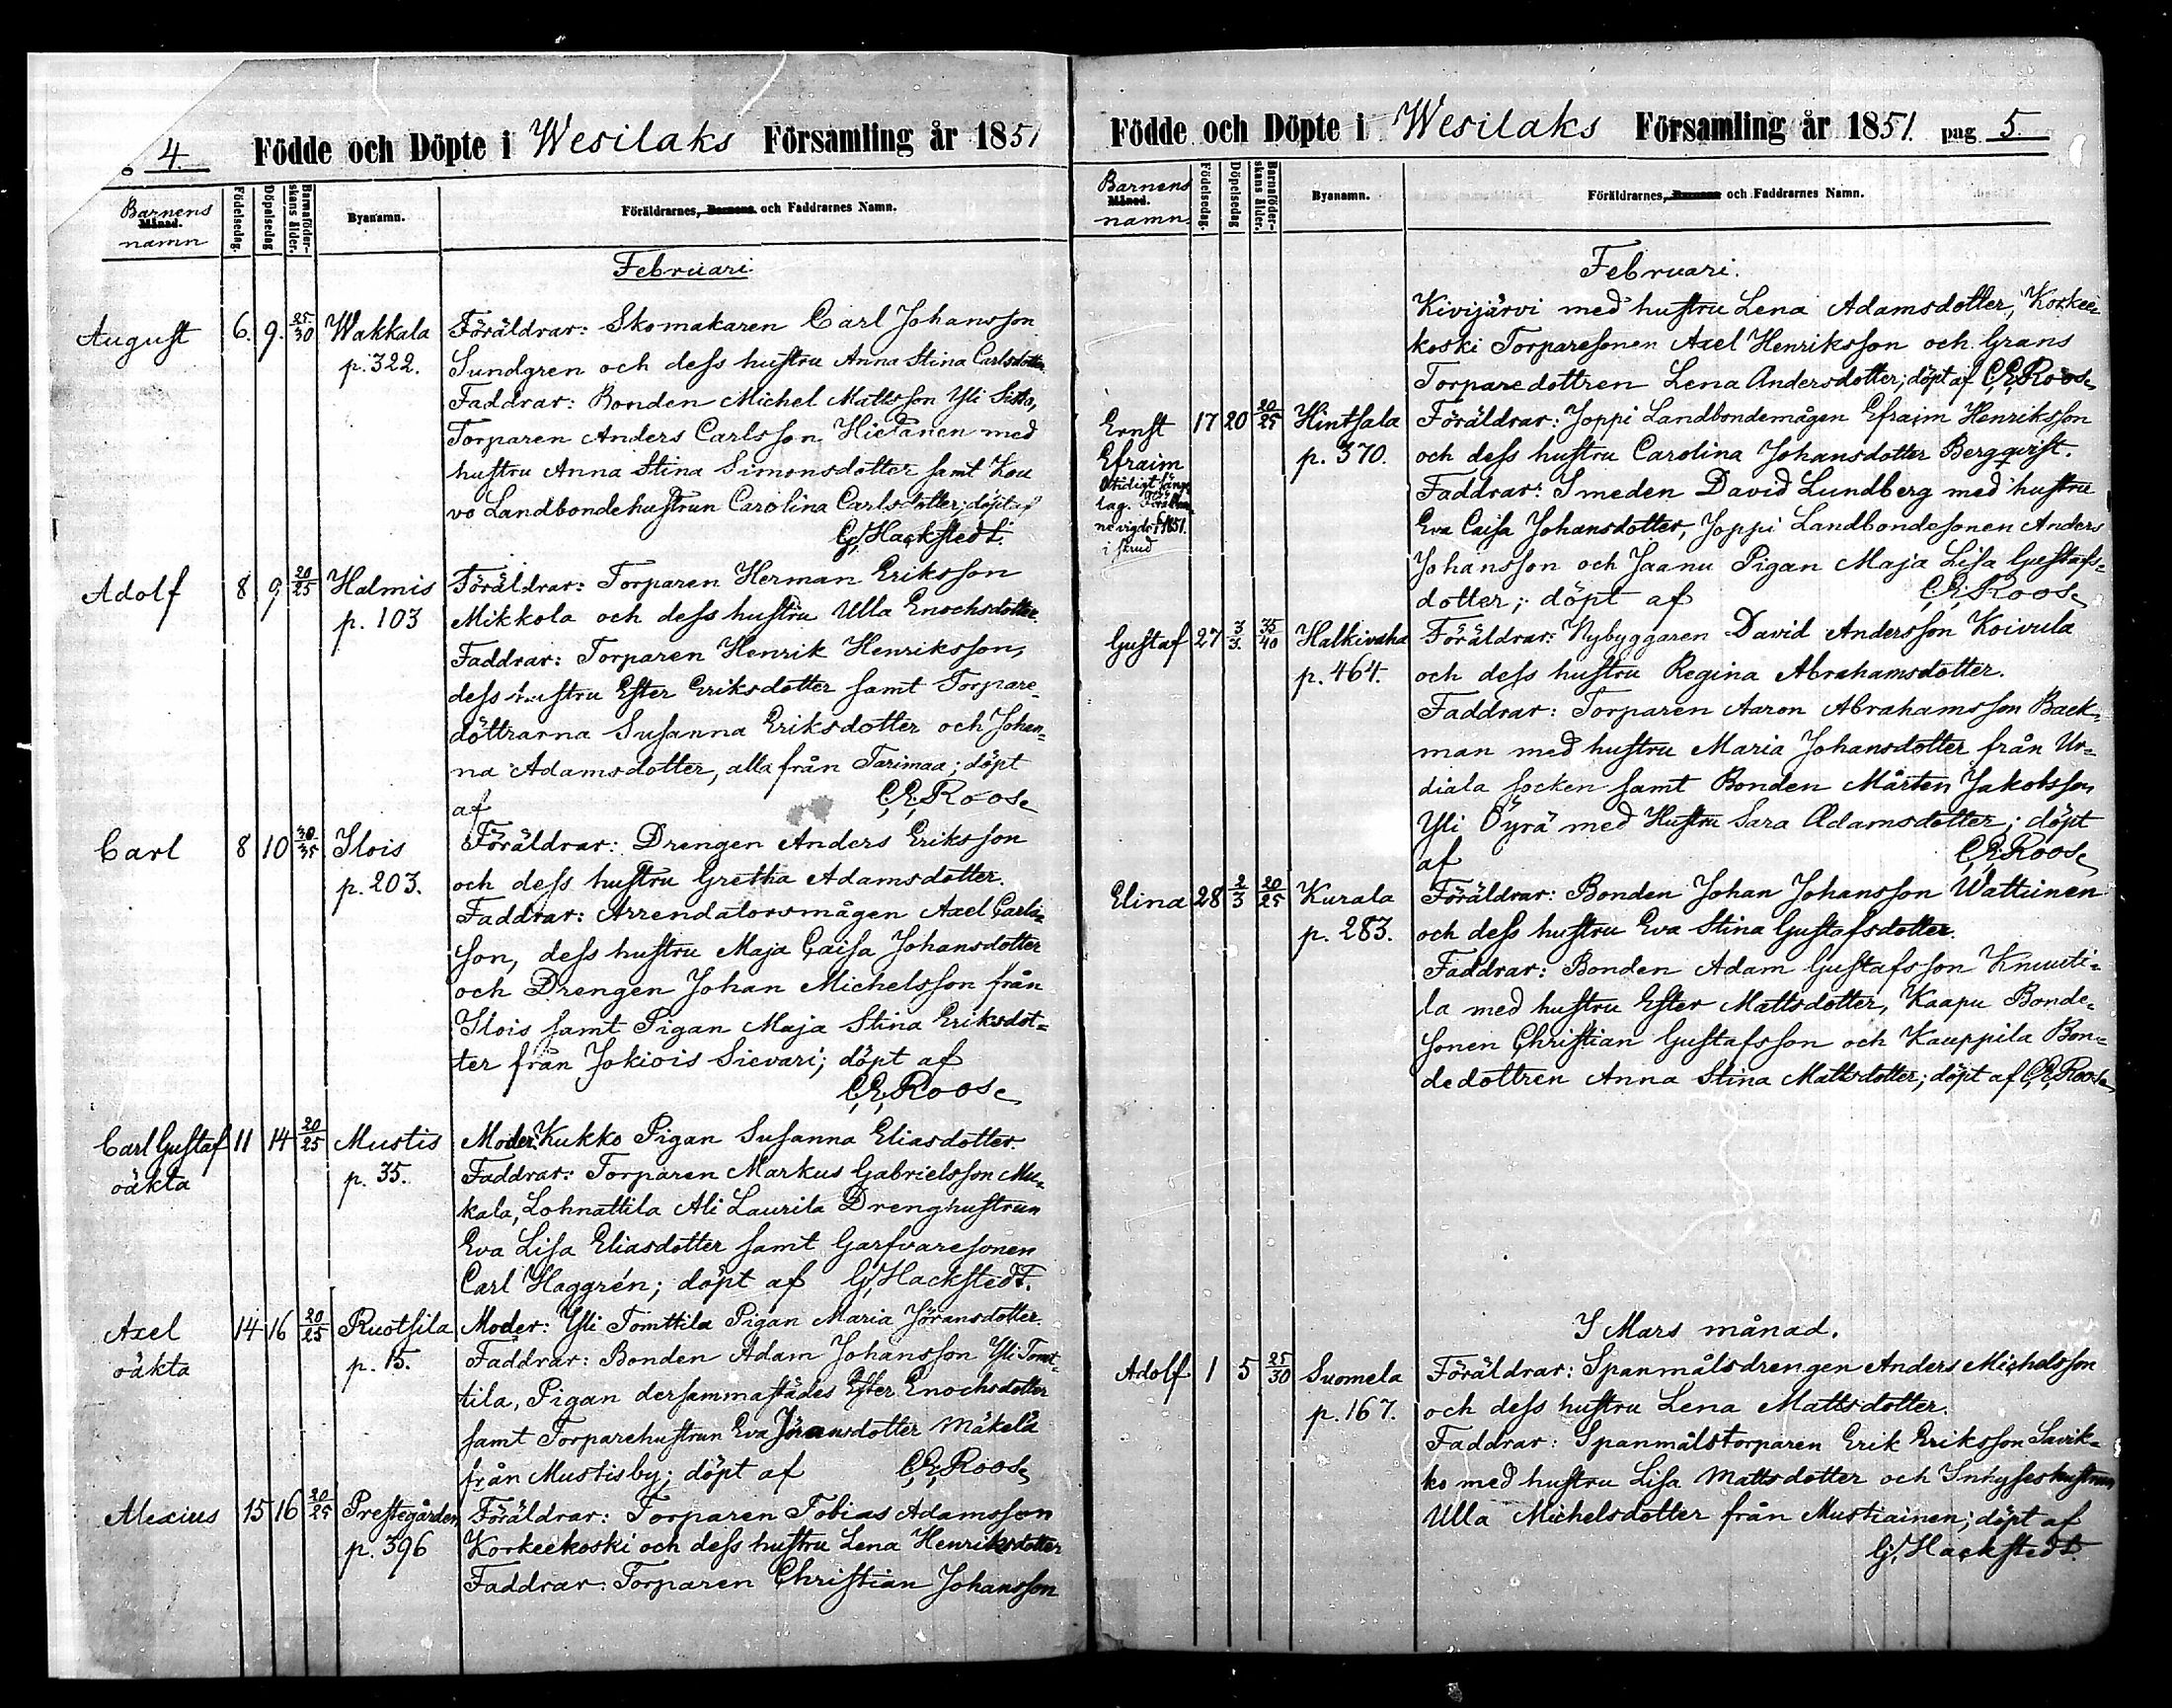 4. Födde och Döpte i Wesilaks Församling år 1851
Barnens Månad. namn
Födelsedag.
Döpelsedag
Barnaföder-
skans ålder.
Byanamn.
Föräldrarnes, Barnens och Faddrarnes Namn.
Februari
August 6. 9. 25/30 Wakkala Föräldrar: Skomakaren Carl Johansson
p. 322. Sundgren och dess hustru Anna Stina Carlsdotter
Faddrar: Bonden Michel Mattsson Yli Sitko,
Torparen Anders Carlsson Hietanen med
hustru Anna Stina Simonsdotter samt Kou
vo Landbondehustrun Carolina Carlsdotter; döpt af
G. Hackstedt.
Adolf 8 9 20/25 Halmis Föräldrar: Torparen Herman Eriksson
p. 103 Mikkola och dess hustru Ulla Enochsdotter.
Faddrar: Torparen Henrik Henriksson,
dess hustru Ester Eriksdotter samt Torpare=
döttrarna Susanna Eriksdotter och Johan=
na Adamsdotter, alla från Tarimaa; döpt
af C. E. Roos.
Carl 8 10 30/35 Ilois Föräldrar: Drengen Anders Eriksson
p. 203. och dess hustru Gretha Adamsdotter.
Faddrar: Arrendatorsmågen Axel Carls=
son, dess hustru Maja Caisa Johansdotter
och Drengen Johan Michelsson från
Ilois samt Pigan Maja Stina Eriksdot=
ter från Jokiois Sievari; döpt af
C. E. Roos.
Carl Gustaf 11 14 20/25 Mustis Moder: Kukko Pigan Susanna Eliasdotter.
oäkta p. 35. Faddrar: Torparen Markus Gabrielsson Mu=
kala, Lohnattila Ali Laurila Drenghustrun
Eva Lisa Eliasdotter samt Garfvaresonen
Carl Haggrén; döpt af G. Hackstedt.
Axel 14 16 20/25 Ruotsila Moder: Yli Tomttila Pigan Maria Jöransdotter.
oäkta p. 15. Faddrar: Bonden Adam Johansson Yli Tomt=
tila, Pigan dersammastädes Ester Enochsdotter
samt Torparehustrun Eva Jöransdotter Mäkelä
från Mustisby; döpt af C. E. Roos.
Alexius 15 16 20/25 Prestegården Föräldrar: Torparen Tobias Adamsson
p. 396 Korkeekoski och dess hustru Lena Henriksdotter
Faddrar: Torparen Christian Johansson
Födde och Döpte i Wesilaks Församling år 1851. pag. 5.
Barnens Månad. namn
Födelsedag.
Döpelsedag
Barnaföder-
skans ålder.
Byanamn.
Föräldrarnes, Barnens och Faddrarnes Namn.
Februari.
Kivijärvi med hustru Lena Adamsdotter, Korkee=
koski Torparesonen Axel Henriksson och Grans
Torparedottren Lena Andersdotter; döpt af C. E. Roos.
Ernst 17 20 20/25 Hintsala Föräldrar: Joppi Landbondemågen Efraim Henriksson
Efraim p. 370. och dess hustru Carolina Johansdotter Bergqvist.
Otidigt sänge
lag. Föräldrar
ne vigde 1851.
i skrud
Faddrar: Smeden David Lundberg med hustru
Eva Caisa Johansdotter, Joppi Landbondesonen Anders
Johansson och Jaanu Pigan Maja Lisa Gustafs=
dotter; döpt af C. E. Roos.
Gustaf 27 3/3. 35/40 Halkivaha Föräldrar: Nybyggaren David Andersson Koivula
p. 464. och dess hustru Regina Abrahamsdotter.
Faddrar: Torparen Aaron Abrahamsson Back=
man med hustru Maria Johansdotter från Ur=
diala socken samt Bonden Mårten Jakobsson
Yli Öyrä med Hustru Sara Adamsdotter; döpt
af C. E. Roos.
Elina 28 2/3 20/25 Kurala Föräldrar: Bonden Johan Johansson Wattunen
p. 283. och dess hustru Eva Stina Gustafsdotter.
Faddrar: Bonden Adam Gustafsson Knuuti=
la med hustru Ester Mattsdotter, Kaapu Bonde=
sonen Christian Gustafsson och Kauppila Bon=
dedottren Anna Stina Mattsdotter; döpt af C. E. Roos.
I Mars månad.
Adolf 1 5 25/30 Suomela Föräldrar: Spanmålsdrengen Anders Michelsson
p. 167. och dess hustru Lena Mattsdotter.
Faddrar: Spanmålstorparen Erik Eriksson Savik=
ko med hustru Lisa Mattsdotter och Inhyseshustrun
Ulla Michelsdotter från Mustiainen; döpt af
G. Hackstedt.